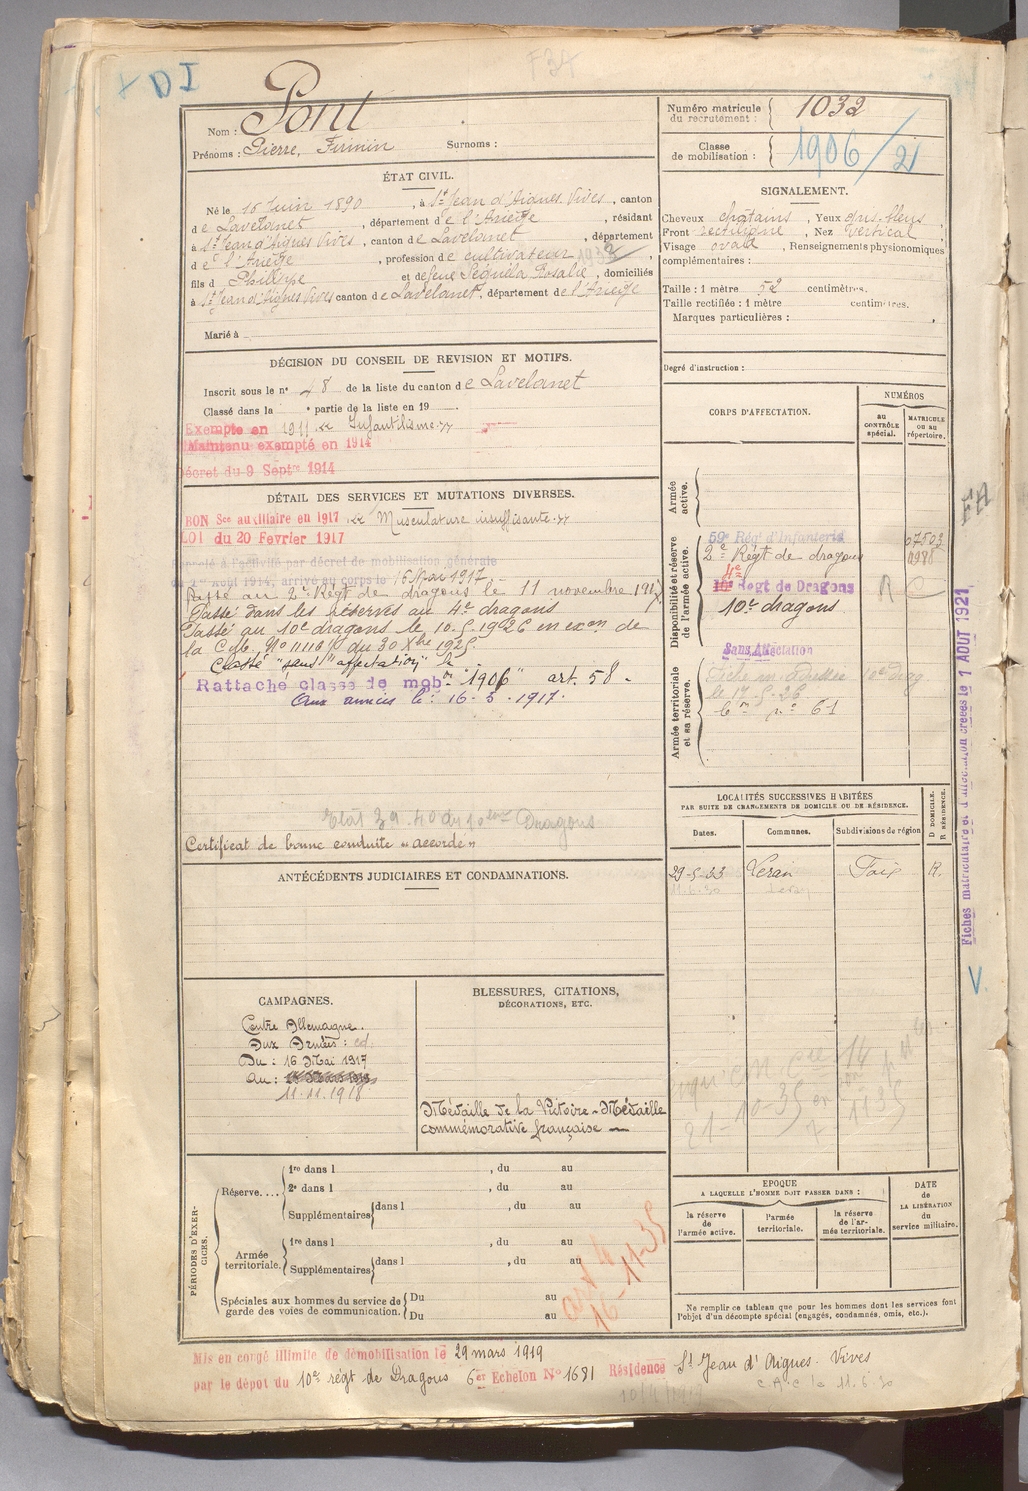 DI
F34
Nom : Pont
Prénoms : Pierre, Firmin Surnoms :
Numéro matricule du recrutement : 1032
Classe de mobilisation : 1906/21
ÉTAT CIVIL.
Né le 16 Juin 1890, à St Jean d'Aigues Vives, canton
de Lavelanet, département de l'Ariège, résidant
à St Jean d'Aigues Vives, canton de Lavelanet, département
de l'Ariège, profession de cultivateur
fils de Philippe et de Rosalie, domiciliés
à St Jean d'Aigues Vives canton de Lavelanet, département de l'Ariège
Marié à
SIGNALEMENT.
Cheveux chatains, Yeux gris-bleus
Front rectiligne, Nez vertical
Visage ovale, Renseignements physionomiques
complémentaires :
Taille : 1 mètre 52 centimètres.
Taille rectifiée : 1 mètre centimètres.
Marques particulières :
Degré d'instruction :
DÉCISION DU CONSEIL DE REVISION ET MOTIFS.
Inscrit sous le n° 48 de la liste du canton de Lavelanet
Classé dans la partie de la liste en 19
Exempté en 1911 Infantilisme
Maintenu exempté en 1914
Décret du 9 Septre 1914
DÉTAIL DES SERVICES ET MUTATIONS DIVERSES.
BON Sce auxiliaire en 1917 Musculature insuffisante
LOI du 20 Fevrier 1917
Rappelé à l'activité par décret de mobilisation générale
du 1er Août 1914, arrivé au corps le 16 Mai 1917
Passé au 2e Régt de dragons le 11 novembre 1917
Passé dans les réserves au 4e dragons
Passé au 10e dragons le 10.5.1926 en exon de
la Circ. N° 11116 du 30 Xbre 1925.
Classé "sans affectation" le
Rattaché classe de mobon 1906 art. 58
Aux armées le : 16-5-1917.
10eme Dragons
Certificat de bonne conduite "accordé"
CORPS D'AFFECTATION.
NUMÉROS
au CONTRÔLE spécial.
MATRICULE OU AU répertoire.
Armée active.
Disponibilité et réserve de l'armée active.
59e Rég d'Infanterie 07503
2e Régt de dragons
4e
Régt de Dragons
10e dragons
Sans Affectation
Armée territoriale et sa réserve.
le 17-5-26
61
Fiches matriculaire et d'affectation créées le 1 AOUT 1921
LOCALITÉS SUCCESSIVES HABITÉES
PAR SUITE DE CHANGEMENTS DE DOMICILE OU DE RÉSIDENCE.
Dates. Communes. Subdivisions de région D DOMICILE. R RÉSIDENCE.
29-5-33 Léran Foix R.
11-6-30 Léran
V.
ANTÉCÉDENTS JUDICIAIRES ET CONDAMNATIONS.
CAMPAGNES.
Contre Allemagne.
Aux Armées :
Du : 16 Mai 1917
Au :
11.11.1918
BLESSURES, CITATIONS,
DÉCORATIONS, ETC.
Médaille de la Victoire - Médaille
commémorative française
21-10-35
PÉRIODES D'EXERCICES.
Réserve....
1re dans l , du au
2e dans l , du au
Supplémentaires dans l , du au
Armée territoriale.
1re dans l , du au
Supplémentaires dans l , du au
Spéciales aux hommes du service de garde des voies de communication.
Du au
Du au
16-11-35
EPOQUE
A LAQUELLE L'HOMME DOIT PASSER DANS :
la réserve de l'armée active.
l'armée territoriale.
la réserve de l'armée territoriale.
DATE de LA LIBÉRATION du service militaire.
Ne remplir ce tableau que pour les hommes dont les services font
l'objet d'un décompte spécial (engagés, condamnés, omis, etc.).
Mis en congé illimité de démobilisation le 29 mars 1919
par le dépôt du 10e régt de Dragons 6er Echelon N° 1681 Résidence St Jean d'Aigues-Vives
11.6.30